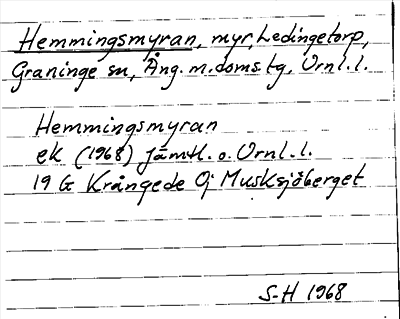 Hemmingsmyran, myr, Ledingetorp,
Graninge sn, Ång. m. doms. tg. Ornl.l.
Hemmingsmyran
ek (1968) Jämtl. o. Ornl.l.
19 G Krångede Oj Musksjöberget
S-H 1968